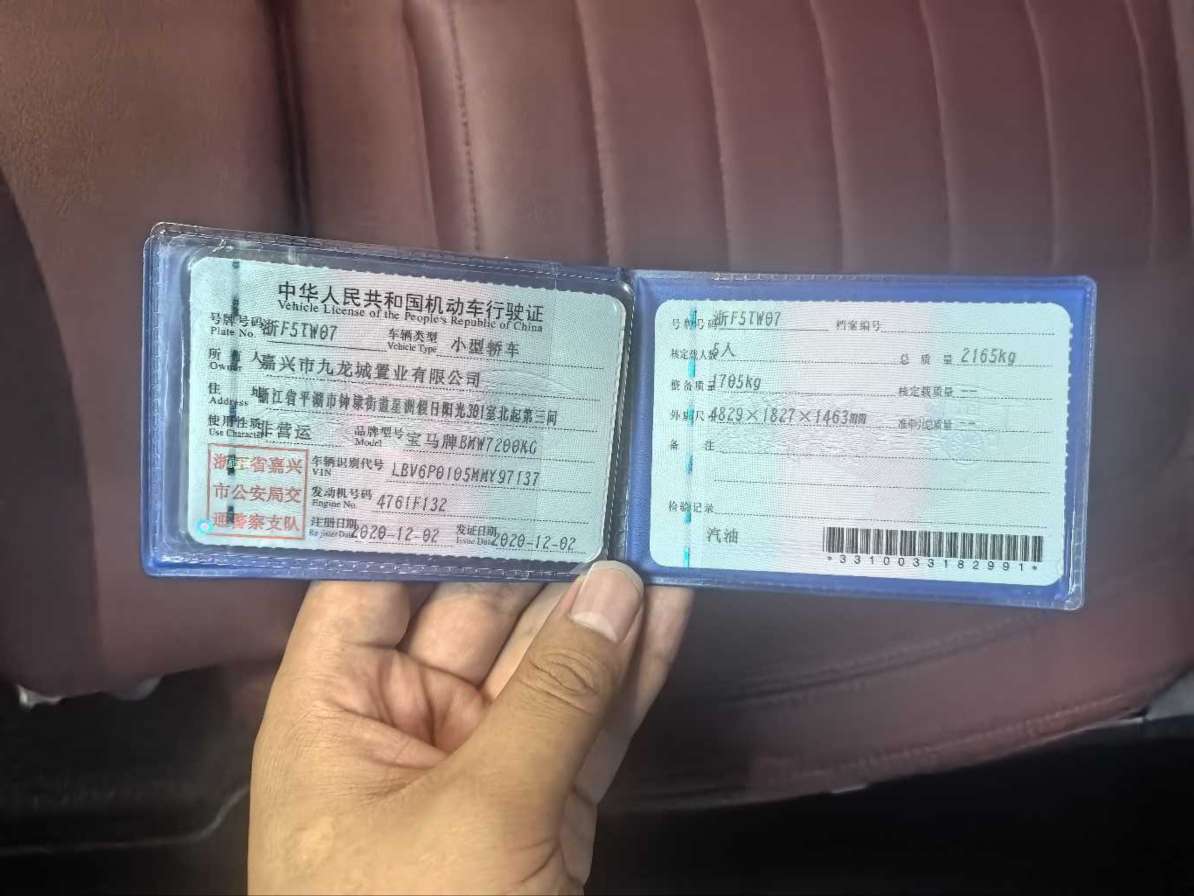 中华人民共和国机动车行驶证
Vehicle License of the People's Republic of China
号牌号码 浙F5TW07 车辆类型 小型轿车
Plate No. Vehicle Type
所有人 嘉兴市九龙城置业有限公司
Owner
住址 浙江省平湖市钟埭街道星洲假日阳光301室北起第三间
Address
使用性质 非营运 品牌型号 宝马牌BMW7200KG
Use Character Model
浙江省嘉兴
市公安局交
通警察支队
车辆识别代号 LBV6P0105MMY97137
VIN
发动机号码 4761F132
Engine No.
注册日期 2020-12-02 发证日期 2020-12-02
Register Date Issue Date
号牌号码 浙F5TW07 档案编号
核定载人数 5人 总质量 2165kg
整备质量 1705kg 核定载质量 --
外廓尺寸 4829×1827×1463mm 准牵引总质量 --
备注
检验记录
汽油
*3310033182991*